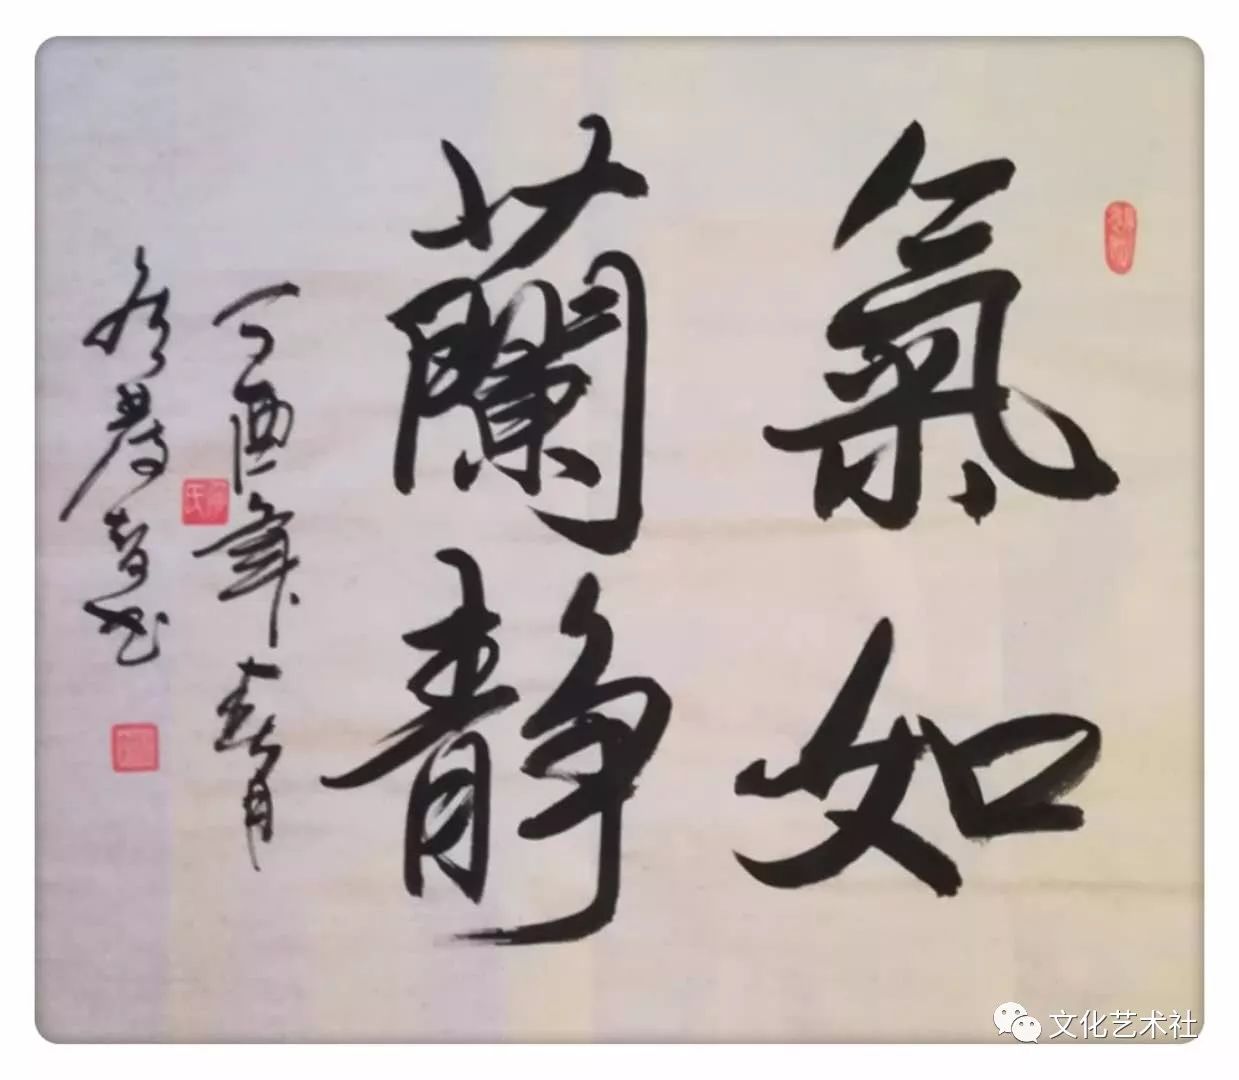 氣如
蘭静
丁酉年春月
书
文化艺术社